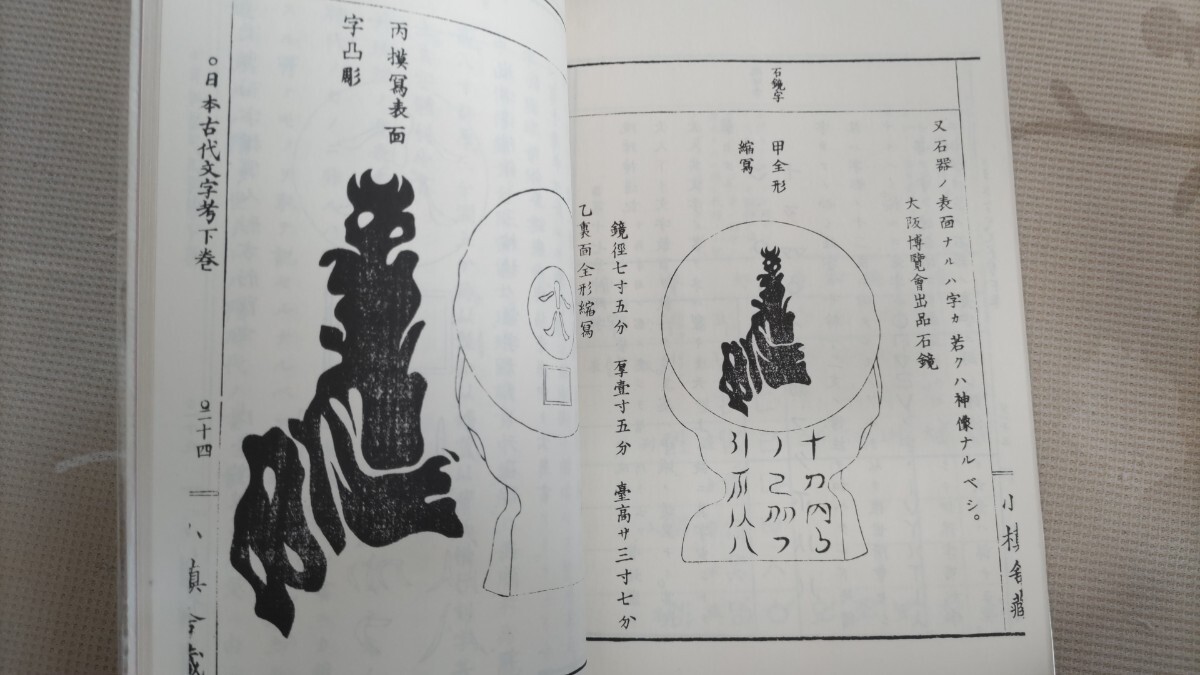 石鏡字
又石器ノ表面ナルハ字カ若クハ神像ナルベシ。
大阪博覽會出品石鏡
甲全形
縮冩
鏡徑七寸五分 厚壹寸五分 臺高サ三寸七分
乙裏面全形縮冩
丙摸冩表面
字凸彫
○日本古代文字考下巻
二十四